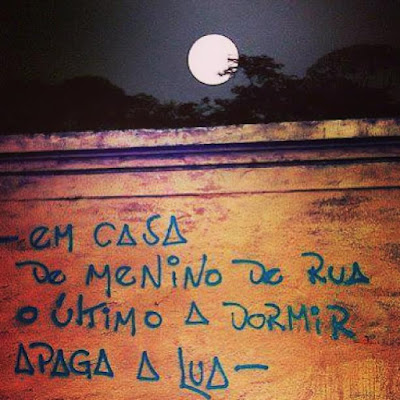 - EM CASA
DE MENINO DE RUA
O ÚLTIMO A DORMIR
APAGA A LUA -